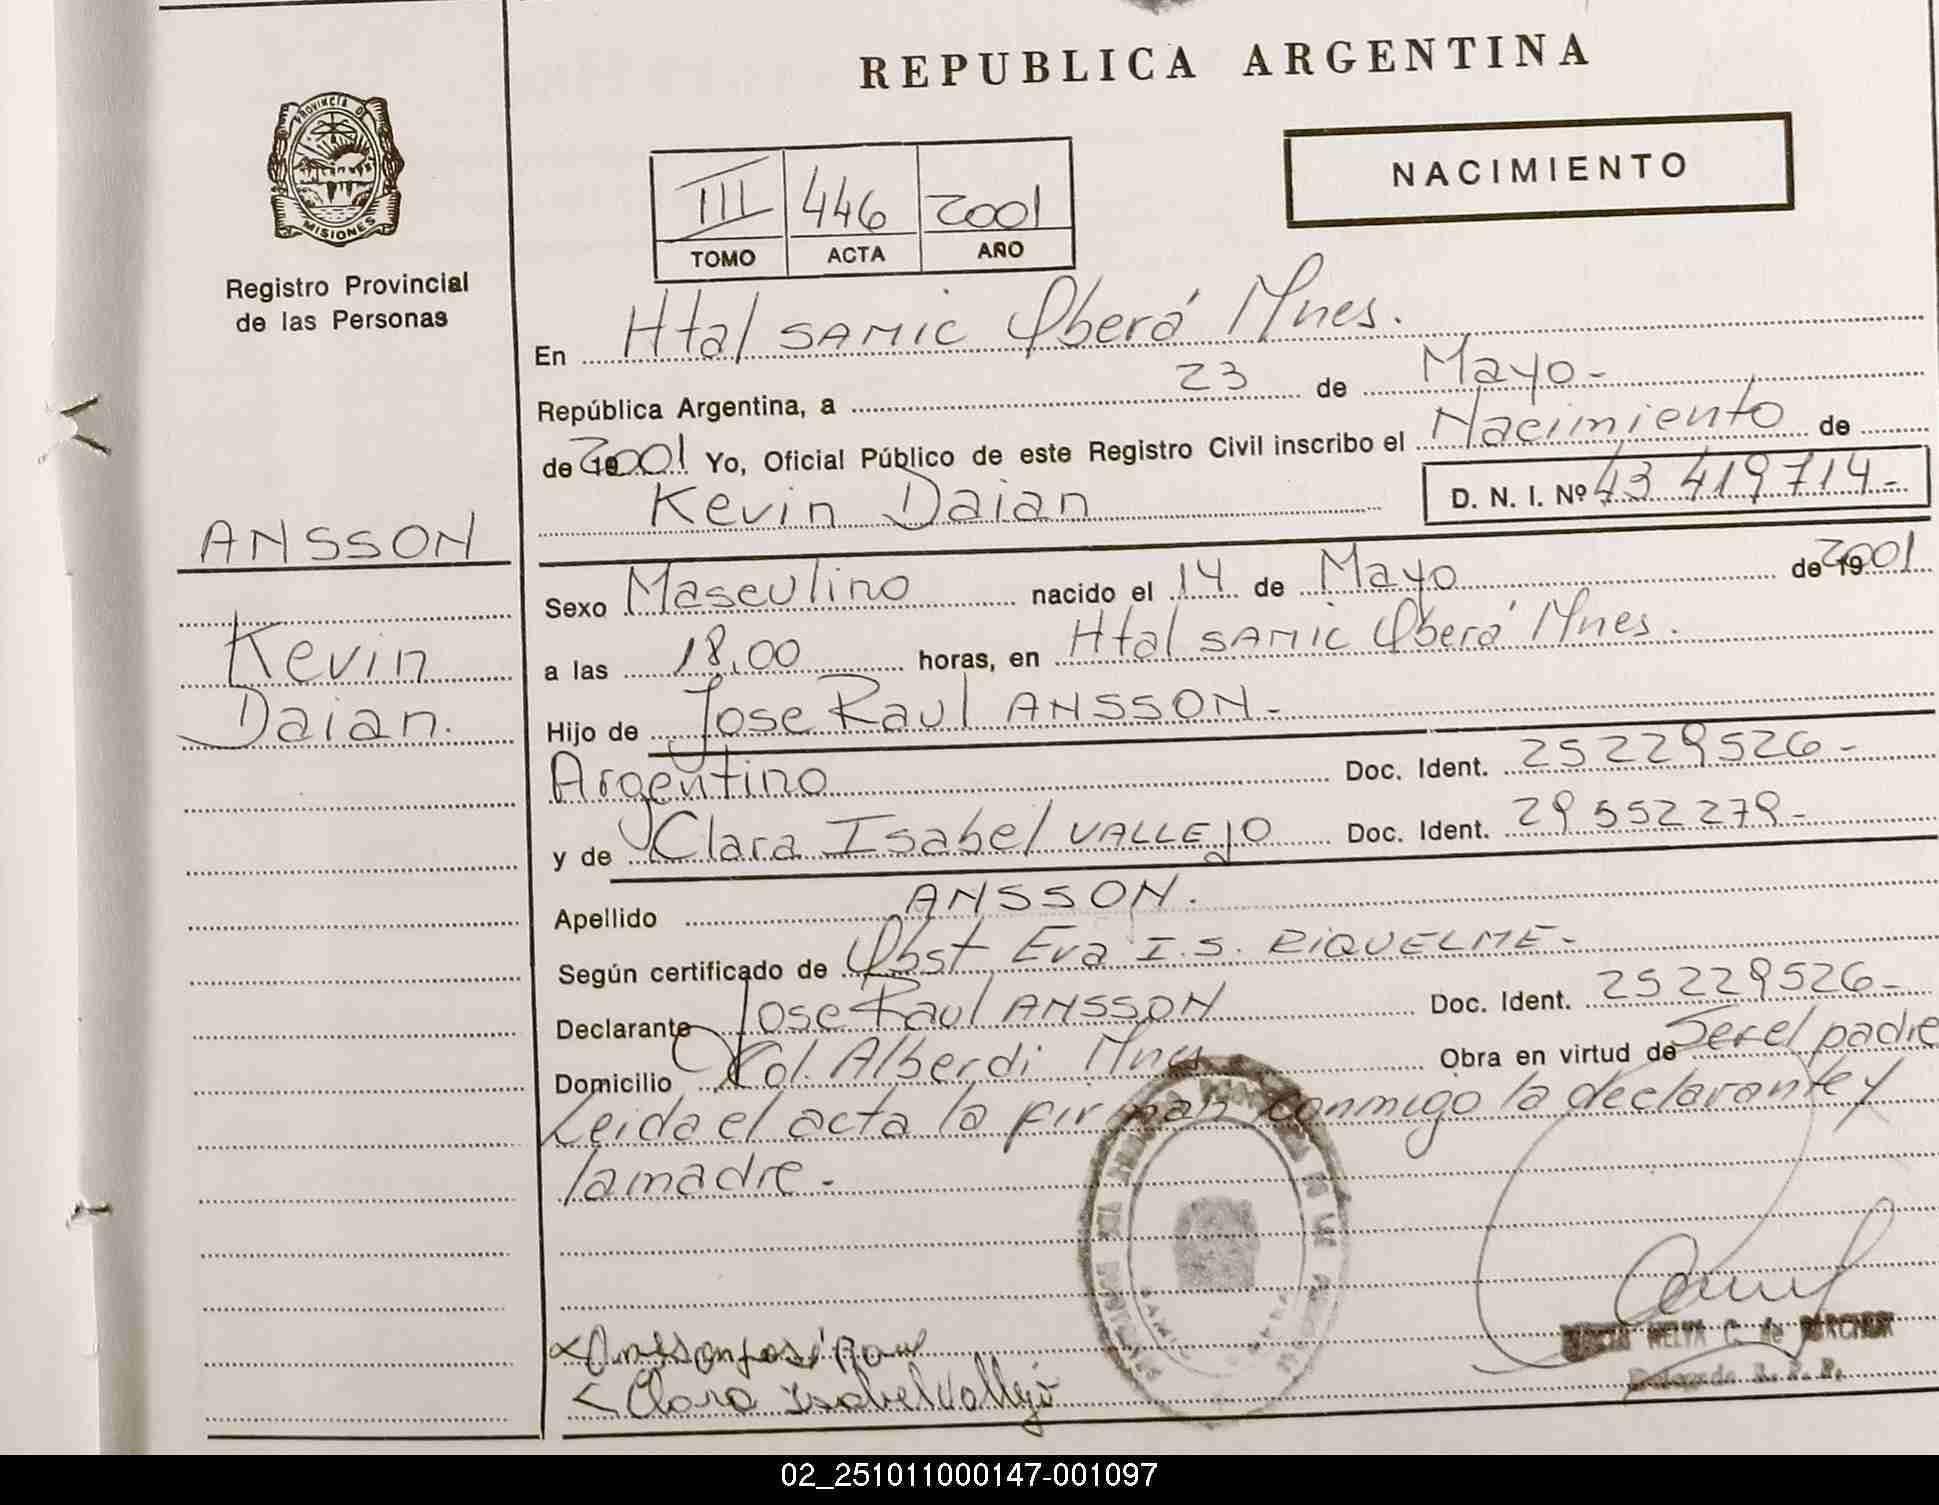 REPUBLICA ARGENTINA
PROVINCIA DE
MISIONES
Registro Provincial
de las Personas
NACIMIENTO
III 446 2001
TOMO ACTA AÑO
En Htal SAMIC Oberá Mnes.
República Argentina, a 23 de Mayo-
de 2001 Yo, Oficial Público de este Registro Civil inscribo el Nacimiento de
Kevin Daian D. N. I. Nº 43 419714-
ANSSON
Kevin
Daian.
Sexo Masculino nacido el 14 de Mayo de 2001
a las 18,00 horas, en Htal SAMIC Oberá Mnes.
Hijo de Jose Raul ANSSON-
Argentino Doc. Ident. 25229526-
y de Clara Isabel VALLEJO Doc. Ident. 29552279-
Apellido ANSSON.
Según certificado de Obst Eva I.S. RIQUELME-
Declarante Jose Raul ANSSON Doc. Ident. 25229526-
Domicilio Col. Alberdi Mnes Obra en virtud de Ser el padre
Leida el acta la firman conmigo la declarante y
la madre.-
Ansson José Raul
Clara Isabel Vallejo
NELVA C. de
Delegada R. P. P.
02_251011000147-001097